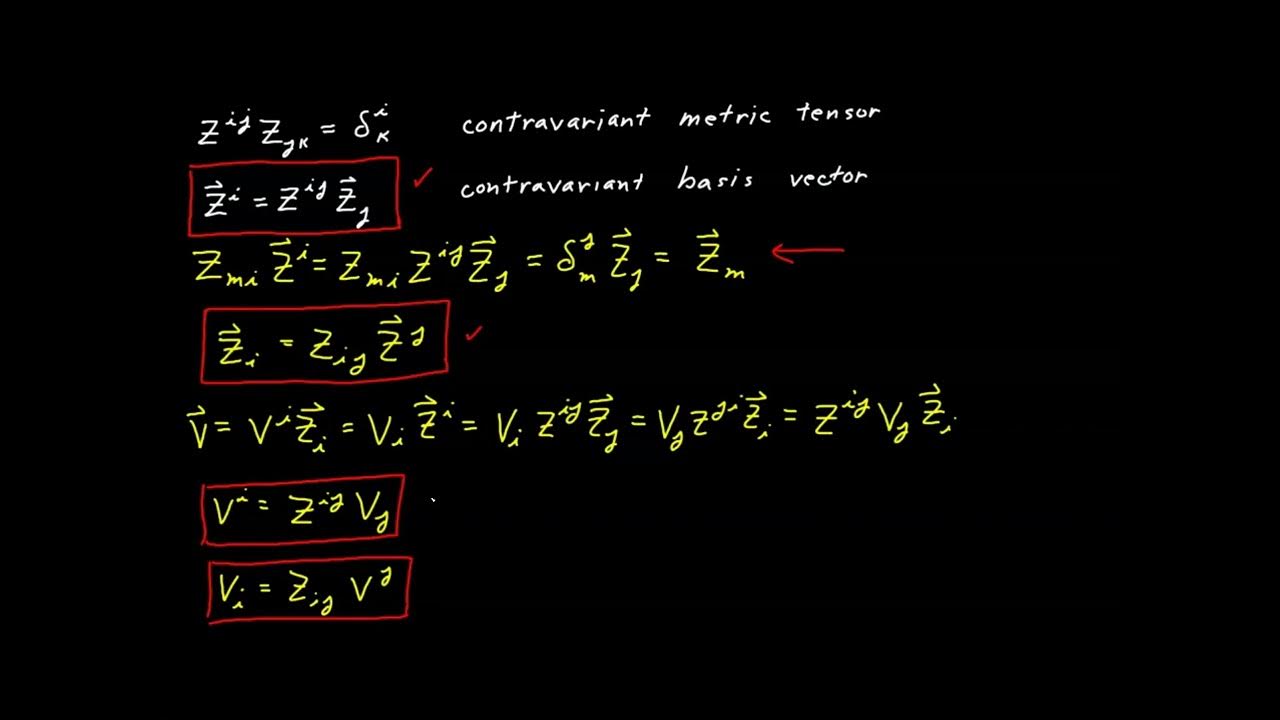 Z^{ij} Z_{jk} = δ^i_k contravariant metric tensor
\vec{Z}^i = Z^{ij} \vec{Z}_j ✓ contravariant basis vector
Z_{mi} \vec{Z}^i = Z_{mi} Z^{ij} \vec{Z}_j = δ^j_m \vec{Z}_j = \vec{Z}_m ←
\vec{Z}_i = Z_{ij} \vec{Z}^j ✓
\vec{V} = V^i \vec{Z}_i = V_i \vec{Z}^i = V_i Z^{ij} \vec{Z}_j = V_j Z^{ji} \vec{Z}_i = Z^{ij} V_j \vec{Z}_i
V^i = Z^{ij} V_j
V_i = Z_{ij} V^j